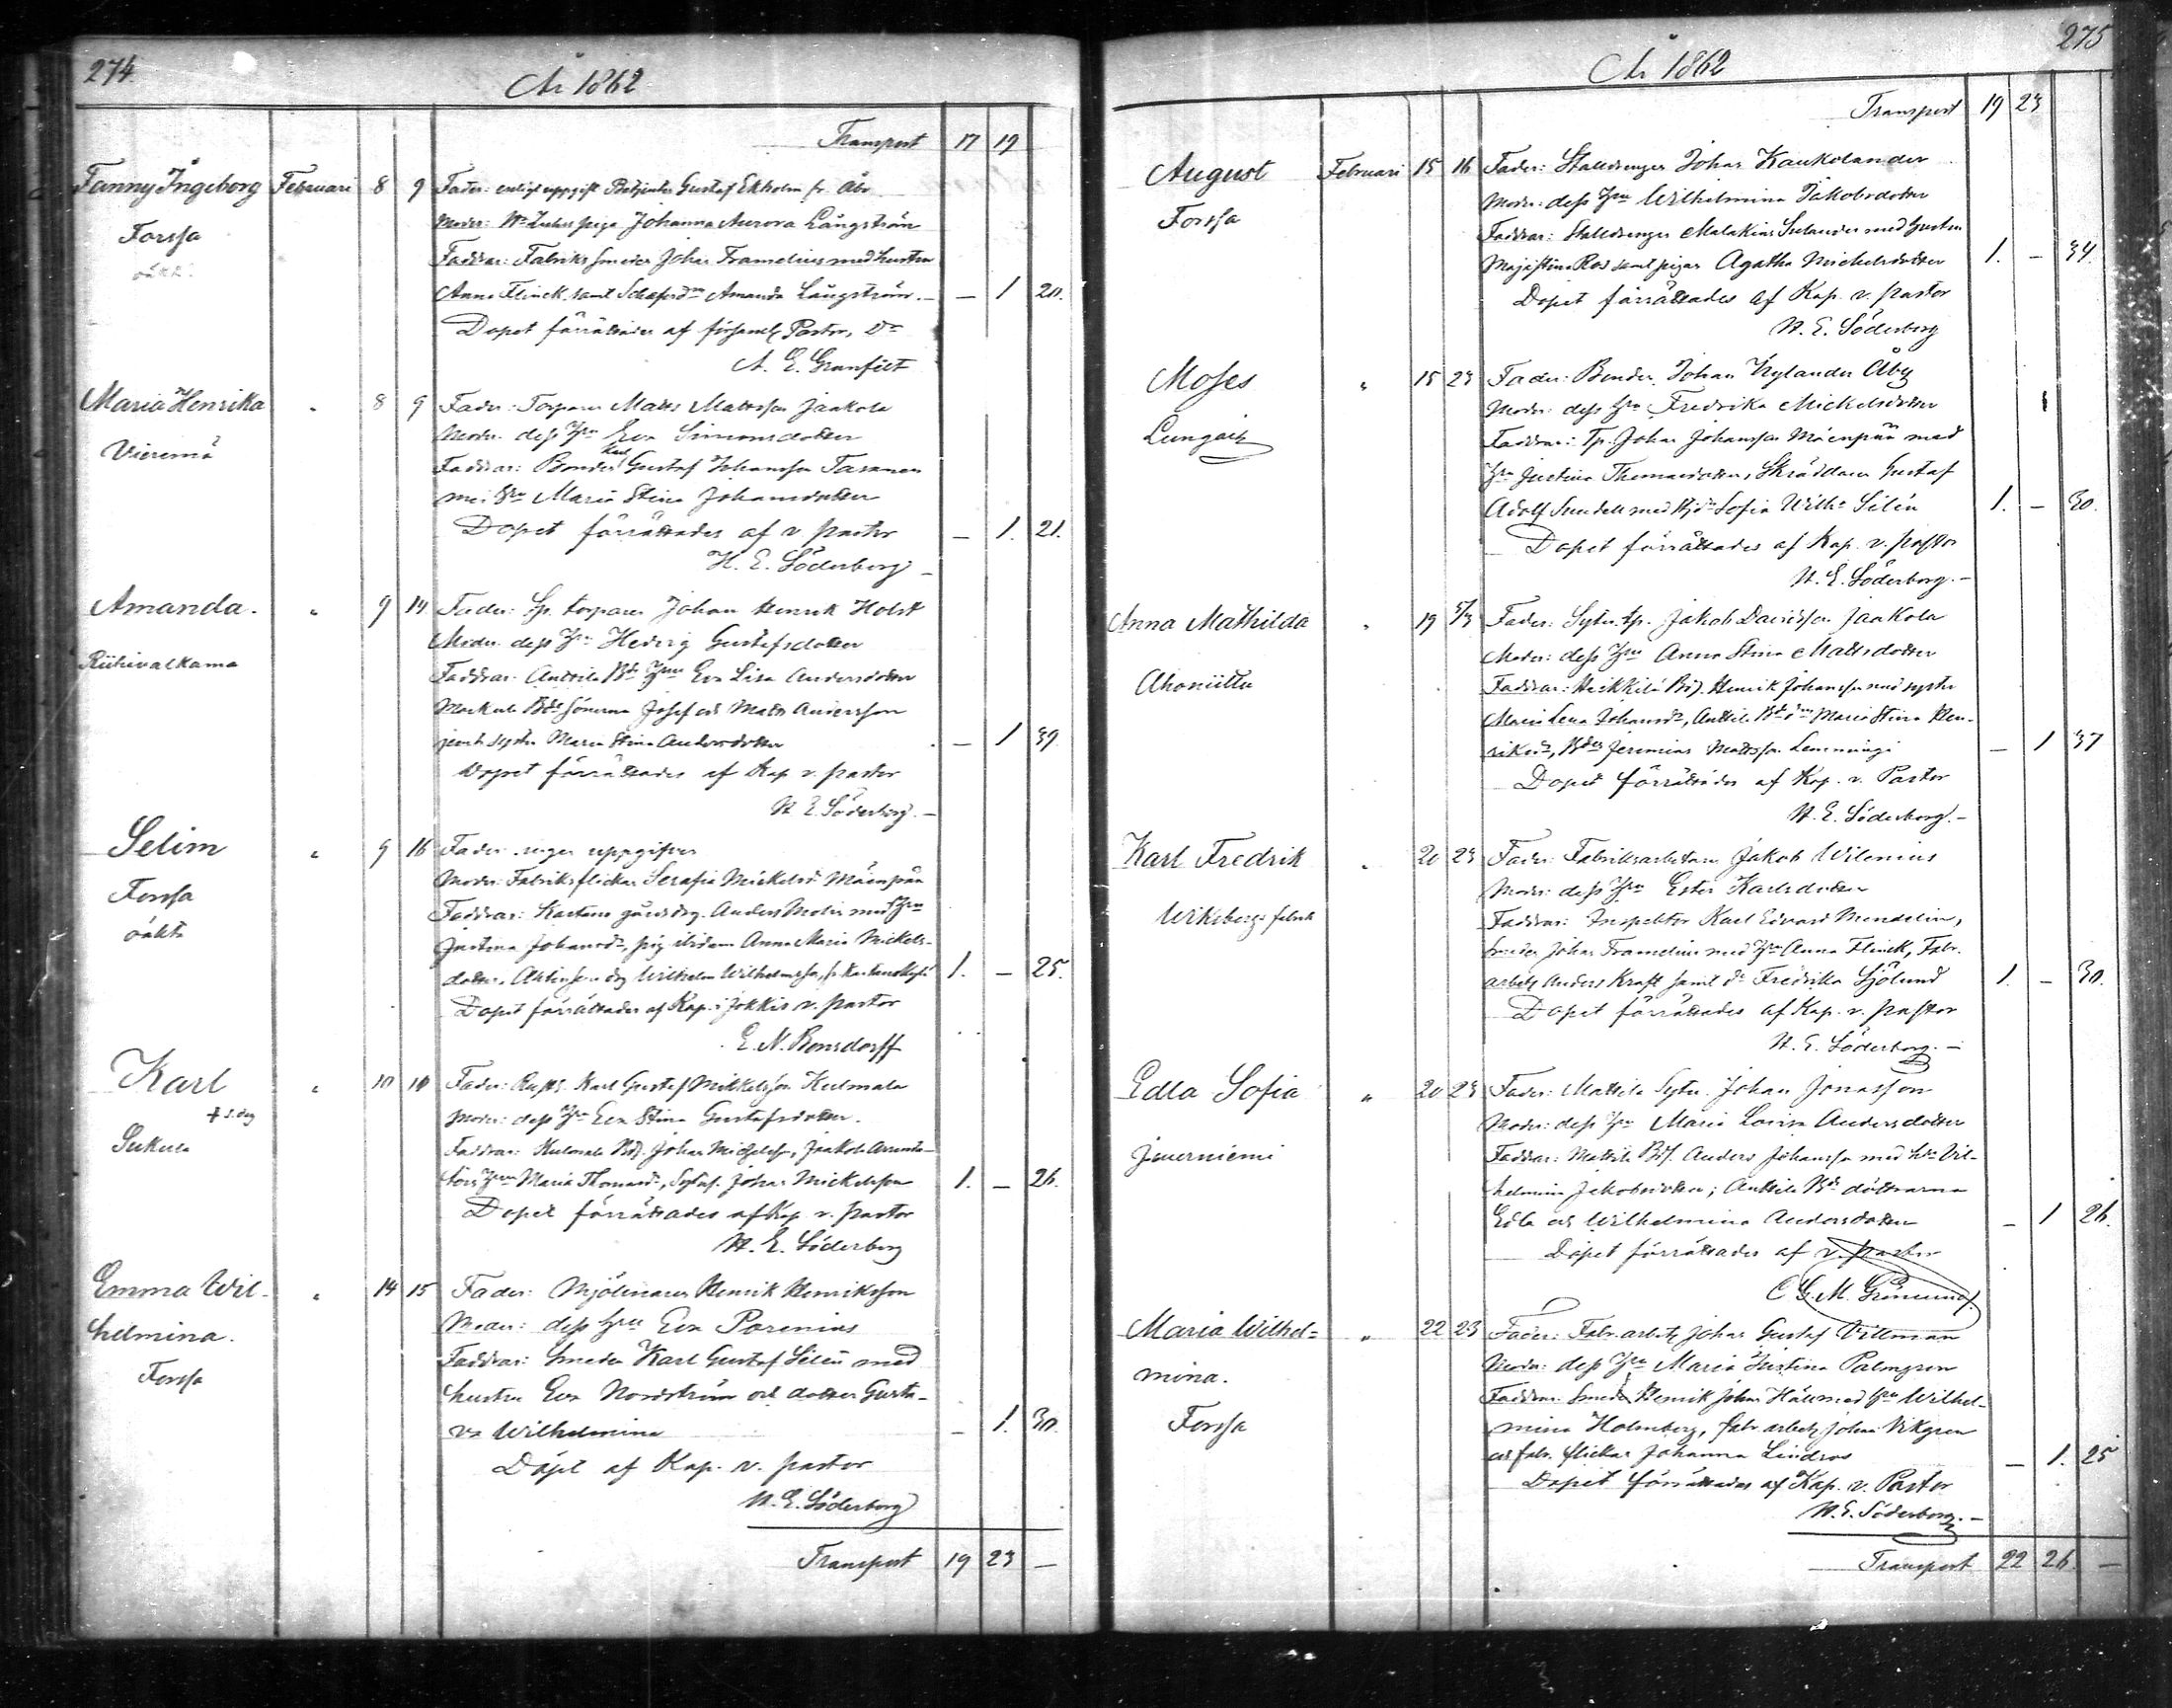 274.
År 1862
Transport 17 19
Fanny Ingeborg Februari 8 9 Fader: enligt uppgift Betjenten Gustaf Ekholm fr. Åbo
Forssa Moder: piga Johanna Aurora Långström
oäkt. Faddrar: Fabriks smeden Johan Framelius med hustru
Anna Flinck samt Amanda Långström. — — 1 20.
Dopet förrättades af Pastor, Dr
A. E. Granfelt
Maria Henrika " 8 9 Fader: Torparen Matts Mattsson Jaakola
Vieremä Moder: dess Hru Eva Simonsdotter
Faddrar: Bonden Karl Gustaf Johansson Tasanen
med Hru Maria Stina Johansdotter
Dopet förrättades af v. pastor — 1. 21.
H. E. Söderberg
Amanda. " 9 14 Fader: Sp. torparen Johan Henrik Holst
Riihivalkama Moder: dess Hru Hedvig Gustafsdotter
Faddrar: Anttila Bd. Hru Eva Lisa Andersdotter
Bds sönerna Josef och Matts Andersson
jemte syster Maria Stina Andersdotter — 1 39.
Dopet förrättades af Kap. v. pastor
H. E. Söderberg. —
Selim " 9 16 Fader: ingen uppgifven
Forssa Moder: Fabriksflickan Serafia Mickelsd. Mäenpää
oäkta Faddrar: Anders Molin med Hru
Justina Johansd., pig. ibidem Anna Maria Mickels-
dotter, Wilhelm Wilhelmsson, 1. — 25.
Dopet förrättades af Kap. i Jokkis v. pastor
E. N. Bonsdorff
Karl " 10 10 Fader: Karl Gustaf Mickelsson Kulmala
† s. dag Moder: dess Hru Eva Stina Gustafsdotter.
Sukula Faddrar: Kulmala Bds. Johan Michelss., Jaakola Arrenda-
tors Hru Maria Thomasd., Johan Mickelsson 1. — 26.
Dopet förrättades af Kap. v. pastor
H. E. Söderberg
Emma Wil- " 14 15 Fader: Mjölnaren Henrik Henriksson
helmina. Moder: dess Hru Eva Porenius
Forssa Faddrar: Smeden Karl Gustaf Silén med
hustru Eva Nordström och dotter Gusta-
va Wilhelmina — 1. 30.
Döpt af Kap. v. pastor
H. E. Söderberg
Transport 19 23 —
275
År 1862
Transport 19 23
August Februari 15 16 Fader: Stalldrengen Johan Kaukolander
Forssa Moder: dess Hru Wilhelmina Jakobsdotter
Faddrar: Stalldrengen Malakias Selander med hustru
Maja Stina Ros samt pigan Agatha Michelsdotter 1. — 34.
Dopet förrättades af Kap. v. pastor
H. E. Söderberg
Moses " 15 23 Fader: Bonden Johan Nylander Åby
Moder: dess Hru Fredrika Mickelsdotter
Faddrar: Tp. Johan Johansson Mäenpää med
Hru Justina Thomasdotter, Skräddaren Gustaf
Adolf Sundell med Sofia Wilha Silén 1. — 30.
Dopet förrättades af Kap. v. pastor
H. E. Söderberg. —
Anna Mathilda " 19 5/3 Fader: Sytn. tp. Jakob Davidsson Jaakola
Ahoniittu Moder: dess Hru Anna Stina Mattsdotter
Faddrar: Heikkilä Bds. Henrik Johansson med syster
Maria Lena Johansdr, Anttila Maria Stina Hen-
riksdr, Jeremias Mattsson Lemmingi — 1 37
Dopet förrättades af Kap. v. Pastor
H. E. Söderberg. —
Karl Fredrik " 20 23 Fader: Fabriksarbetaren Jakob Wilenius
Wiksbergs fabrik Moder: dess Hru Ester Karlsdotter
Faddrar: Inspektor Karl Edvard Mendelin,
Smeden Johan Framelius med Hru Anna Flinck, Fabr.
arbet. Anders Kraft samt Fredrika Sjölund 1. — 30.
Dopet förrättades af Kap. v. pastor
H. E. Söderberg. —
Edla Sofia " 20 23 Fader: Mattila Sytn. Johan Jonasson
Moder: dess Hru Maria Lovisa Andersdotter
Faddrar: Mattila Bds. Anders Johansson med Hu Vil-
helmina Jakobsdotter; Anttila Bds döttrarna
Edla och Wilhelmina Andersdotter — 1 26.
Dopet förrättades af v. pastor
C. G. M. Grönlund.
Maria Wilhel- " 22 23 Fader: Fabr. arbet. Johan Gustaf Villman
mina. Moder: dess Hru Maria Justina Palmgren
Forssa Faddrar: Smeden Henrik Johan Häll med Hru Wilhel-
mina Holmberg, fabr. arbet. Johan Vikgren
och fabr. flickan Johanna Lindros — 1. 25
Dopet förrättades af Kap. v. Pastor
H. E. Söderberg. —
Transport 22 26. —